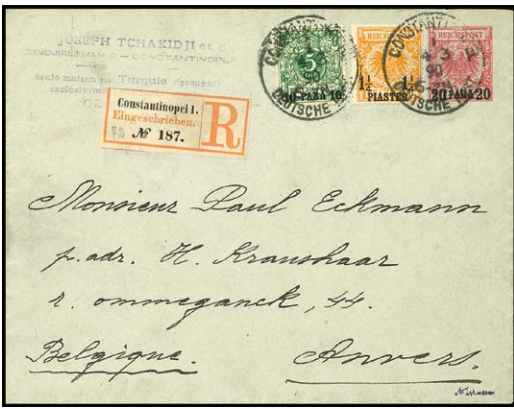 JOSEPH TCHAKIDJI et
CONSTANTINOPLE
Seule maison en Turquie s'occupant
CONSTANTINOPEL
90
DEUTSCHE
5
10 PARA 10
REICHSPOST
1¼ 1¼
PIASTER
CONSTANTI
90
DEUTSCHE
REICHSPOST
20 PARA 20
Constantinopel 1.
Eingeschrieben.
№ 187.
R
Monsieur Paul Eckmann
p. adr. H. Kraushaar
r. ommeganck, 44.
Belgique. Anvers.